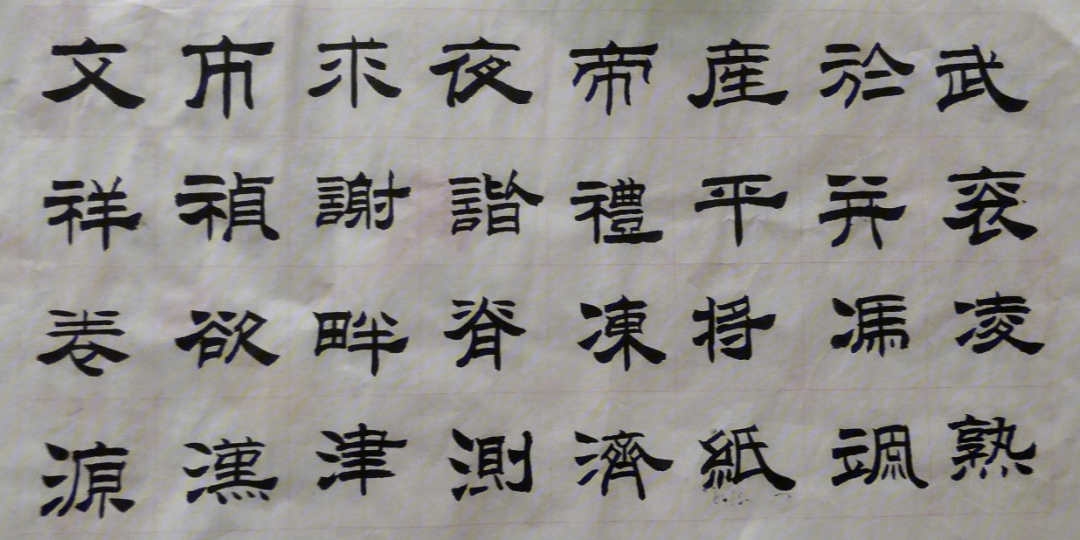 文市求夜帝產於武
祥禎謝諧禮平并衮
卷欲畔脊凍将馮凌
源漢津測濟紙颯熟